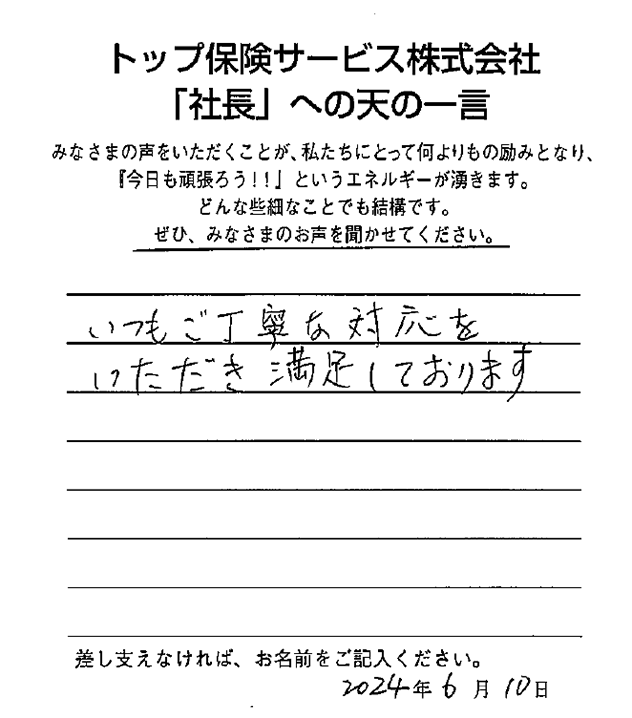 トップ保険サービス株式会社
「社長」への天の一言
みなさまの声をいただくことが、私たちにとって何よりもの励みとなり、
『今日も頑張ろう!!』というエネルギーが湧きます。
どんな些細なことでも結構です。
ぜひ、みなさまのお声を聞かせてください。
いつもご丁寧な対応を
いただき満足しております
差し支えなければ、お名前をご記入ください。
2024年6月10日